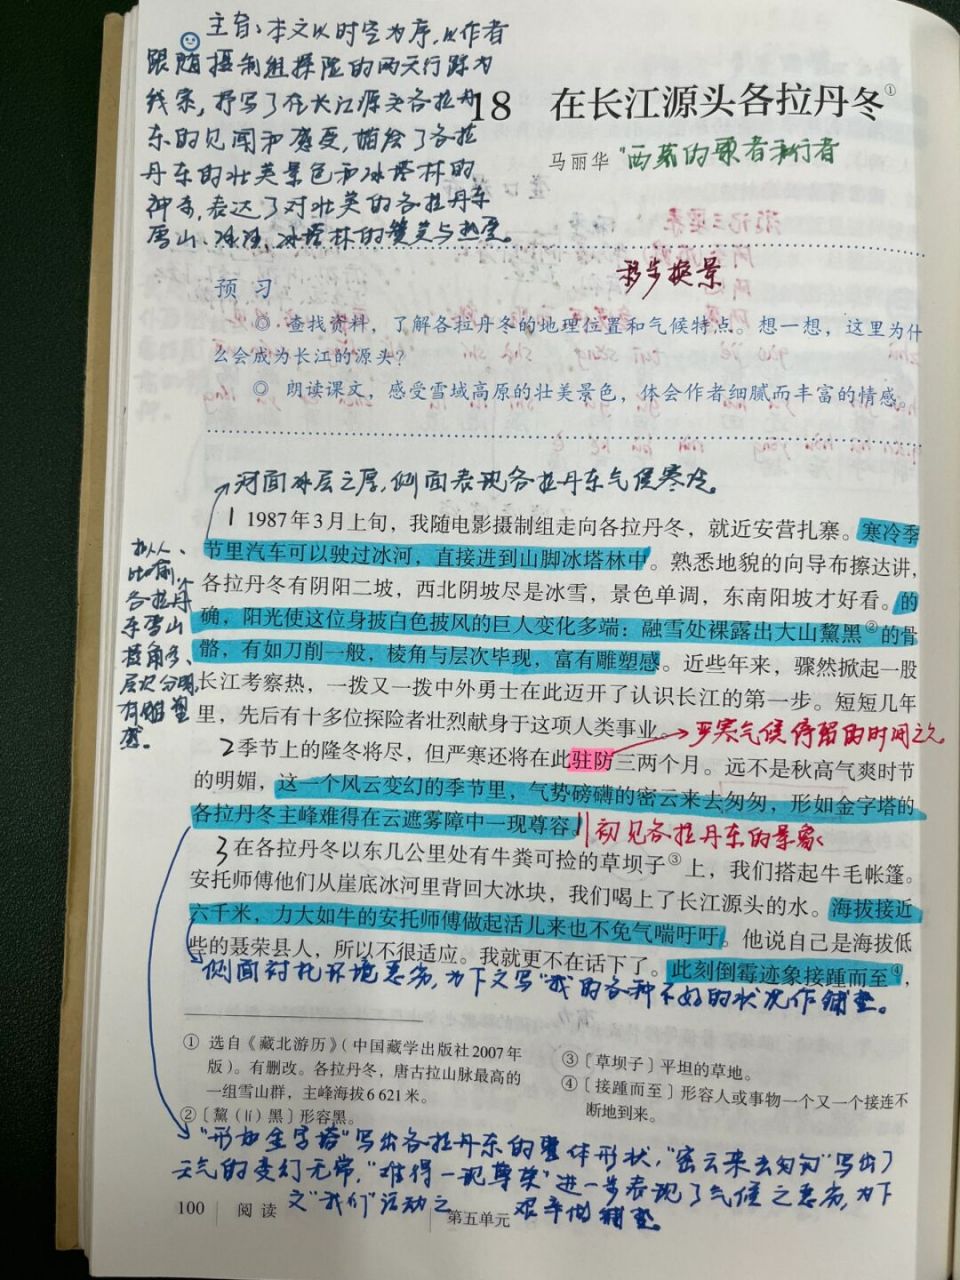 主旨：本文以时空为序，以作者
跟随摄制组探险的两天行踪为
线索，抒写了在长江源头各拉丹
东的见闻和感受，描绘了各拉
丹东的壮美景色和冰塔林的
神奇，表达了对壮美的各拉丹东
雪山、冰河、冰塔林的赞美与热爱。
18 在长江源头各拉丹冬①
马丽华 "西藏的歌者和行者
移步换景
预 习
◎ 查找资料，了解各拉丹冬的地理位置和气候特点。想一想，这里为什
么会成为长江的源头？
◎ 朗读课文，感受雪域高原的壮美景色，体会作者细腻而丰富的情感。
河面冰层之厚，侧面表现各拉丹东气候寒冷。
1 1987年3月上旬，我随电影摄制组走向各拉丹冬，就近安营扎寨。寒冷季
节里汽车可以驶过冰河，直接进到山脚冰塔林中。熟悉地貌的向导布擦达讲，
各拉丹冬有阴阳二坡，西北阴坡尽是冰雪，景色单调，东南阳坡才好看。的
确，阳光使这位身披白色披风的巨人变化多端：融雪处裸露出大山黧黑②的骨
骼，有如刀削一般，棱角与层次毕现，富有雕塑感。近些年来，骤然掀起一股
长江考察热，一拨又一拨中外勇士在此迈开了认识长江的第一步。短短几年
里，先后有十多位探险者壮烈献身于这项人类事业。
拟人、
比喻，
各拉丹
东雪山
棱角多、
层次分明，
有雕塑
感。
严寒气候停留的时间之久
2 季节上的隆冬将尽，但严寒还将在此驻防三两个月。远不是秋高气爽时节
的明媚，这一个风云变幻的季节里，气势磅礴的密云来去匆匆，形如金字塔的
各拉丹冬主峰难得在云遮雾障中一现尊容。
初见各拉丹东的景象
3 在各拉丹冬以东几公里处有牛粪可捡的草坝子③上，我们搭起牛毛帐篷。
安托师傅他们从崖底冰河里背回大冰块，我们喝上了长江源头的水。海拔接近
六千米，力大如牛的安托师傅做起活儿来也不免气喘吁吁。他说自己是海拔低
些的聂荣县人，所以不很适应。我就更不在话下了。此刻倒霉迹象接踵而至④，
侧面衬托环境恶劣，为下文写"我"的各种不好的状况作铺垫。
① 选自《藏北游历》（中国藏学出版社2007年
版）。有删改。各拉丹冬，唐古拉山脉最高的
一组雪山群，主峰海拔6 621米。
② 〔黧（lí）黑〕形容黑。
③ 〔草坝子〕平坦的草地。
④ 〔接踵而至〕形容人或事物一个又一个接连不
断地到来。
"形如金字塔"写出各拉丹东的整体形状，"密云来去匆匆"写出了
天气的变幻无常，"难得一现尊荣"进一步表现了气候之恶劣，为下
文"我们"活动之艰辛做铺垫。
100 阅 读 第五单元